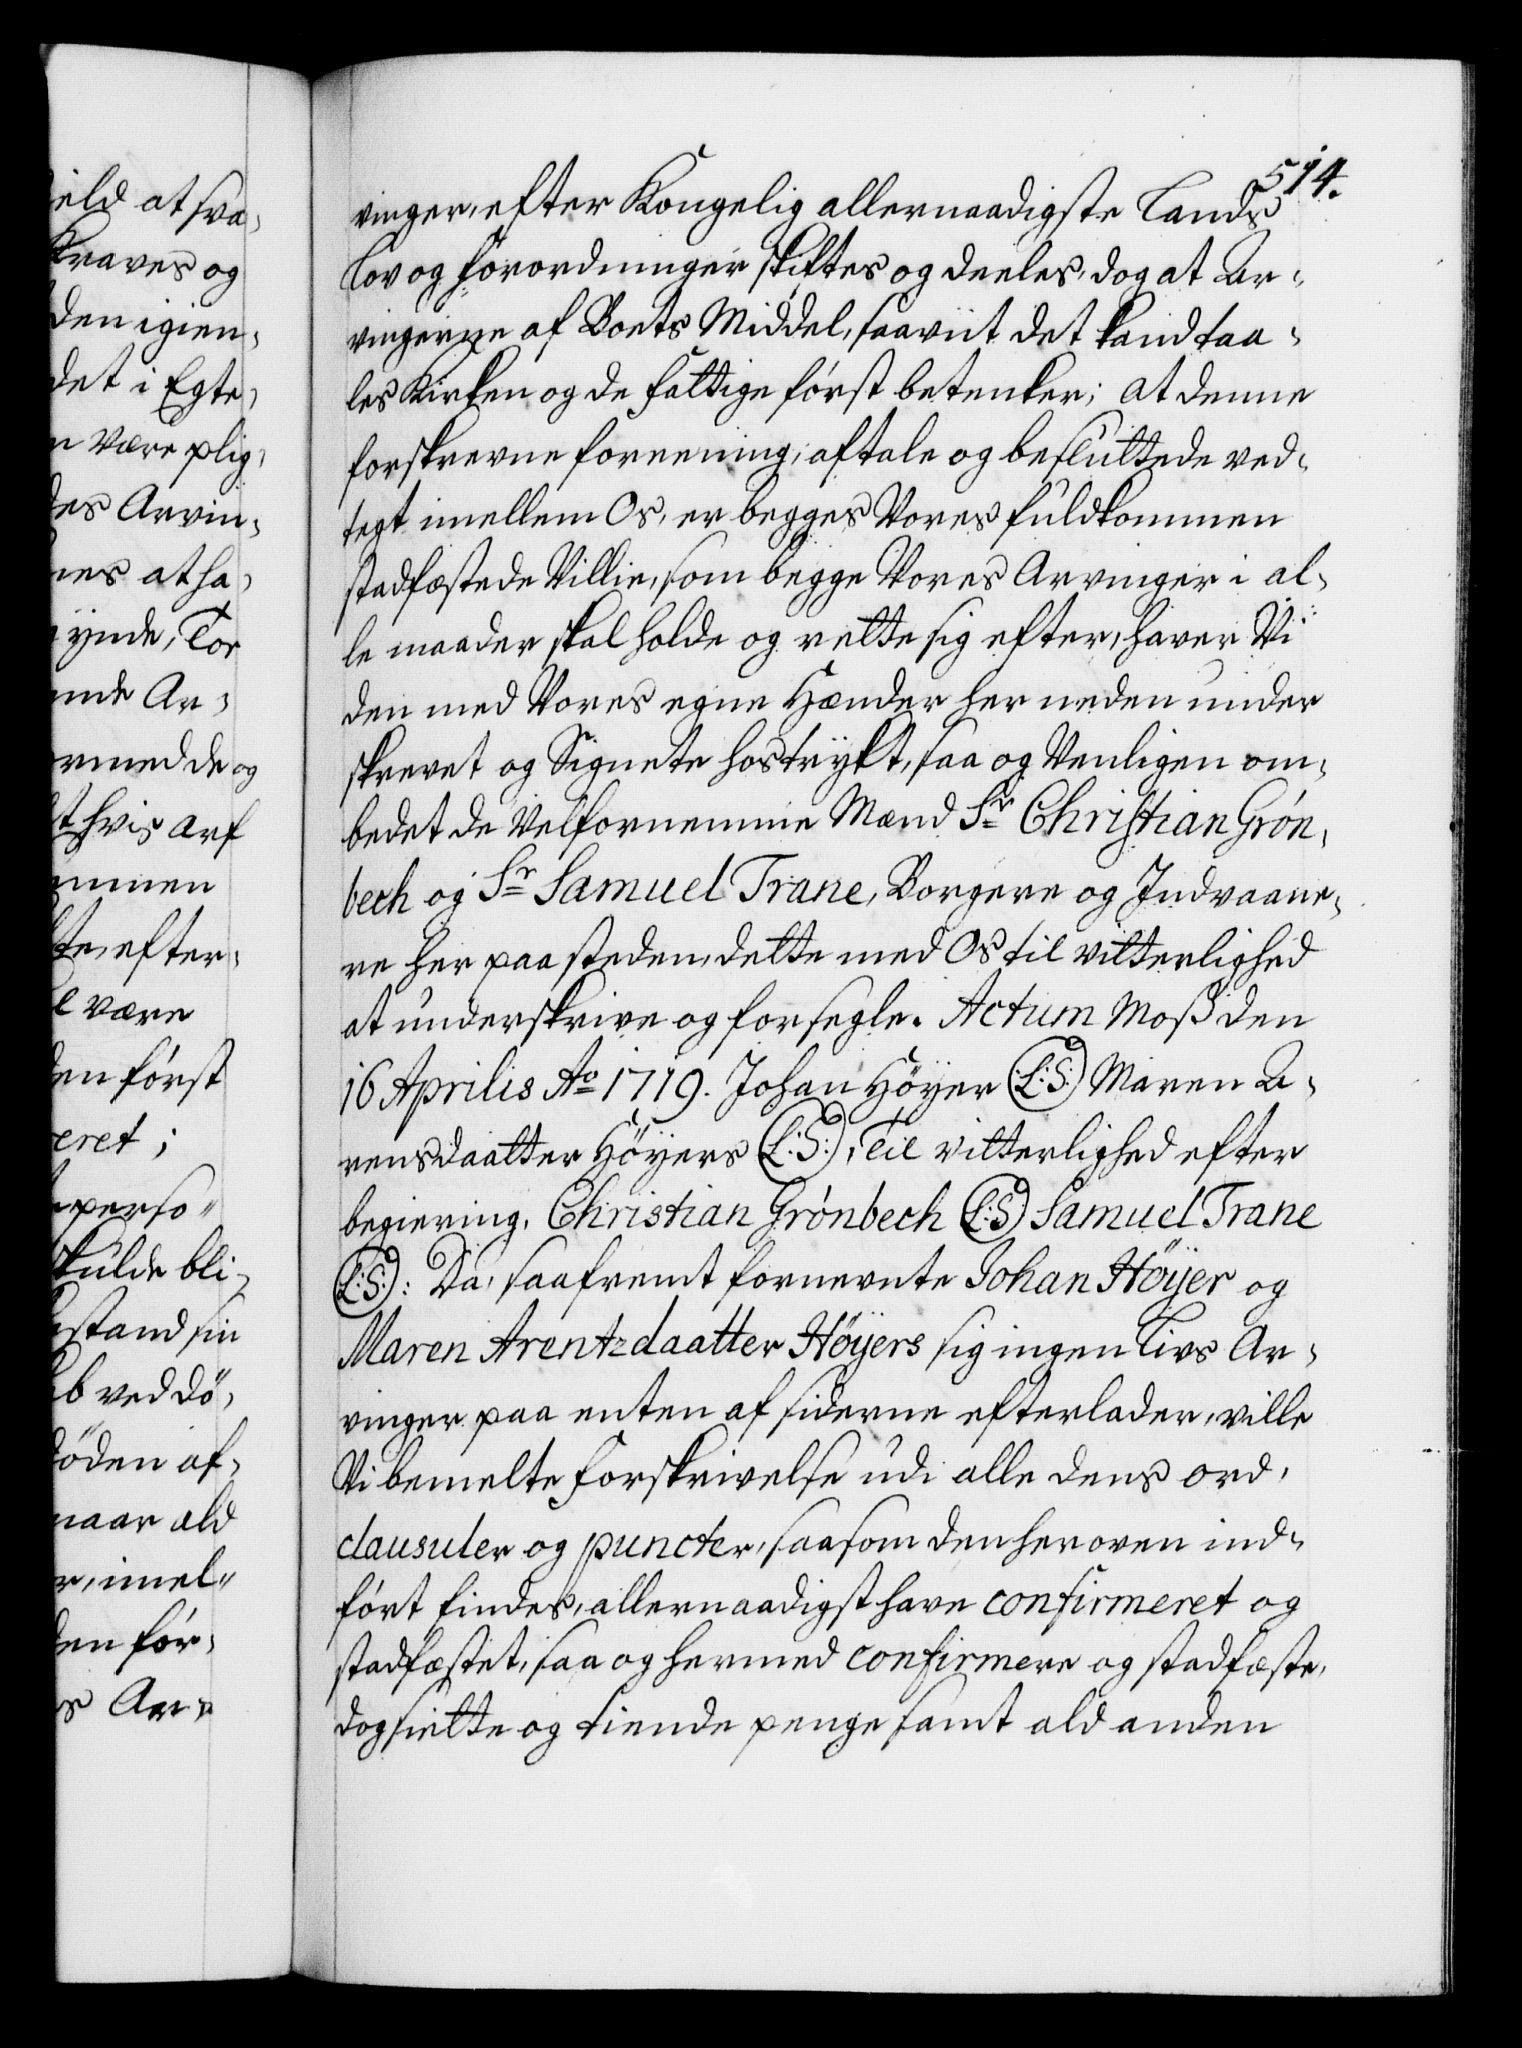 ield at sva,
Kraves og
den igien,
det i Egte,
n være plig,
des Arvin,
nes at ha,
ynde, Tor
ende Ar,
ermed de og
t hvis Arf
ommen
te, efter,
l være
den først
eret;
perso"
skulde bli,
stand sin
b ved Dö,
döden af,
naar ald
r, imel"
den för,
s Ar,
514.
vinger, efter Kongelig allernaadigste Lands
Lov og Forordninger skiftes og deeles, dog at Ar,
vingerne af Boets Middel, saaviit det kand taa,
les Kirken og de Fattige först betenker; at denne
forskrevne foreening, aftale og besluttede ved,
tegt imellem Os, er begges Vores fuldkommen
stadfæstede Villie, som begge Vores Arvinger i al,
le maader skal holde og rette sig efter, haver Vi
den med Vores egne Hænder her neden under
skrevet og Signete hostrykt, saa og Venligen om,
bedet de Velfornemme Mænd Sr Christian Grön,
bech og Sr Samuel Trane, Borgere og Indvaane,
re her paa steden, dette med Os til vitterlighed
at underskrive og forsegle. Actum Moss den
16 Aprilis Ao 1719. Johan Höyer (L:S:) Maren A,
rensdaatter Höyers (L:S:), Til vitterlighed efter
begiering, Christian Grönbech (L:S) Samuel Trane
(L:S:): Da, saafremt fornevnte Johan Höyer og
Maren Arentzdaatter Höyers sig ingen Livs Ar,
vinger paa enten af siderne efterlader, ville
Vi bemelte Forskrivelse udi alle dens ord,
clausuler og puncter, saasom den her oven ind,
fört findes, allernaadigst have confirmeret og
stadfæstet, saa og hermed confirmere og stadfæste,
dog siette og tiende penge samt ald anden